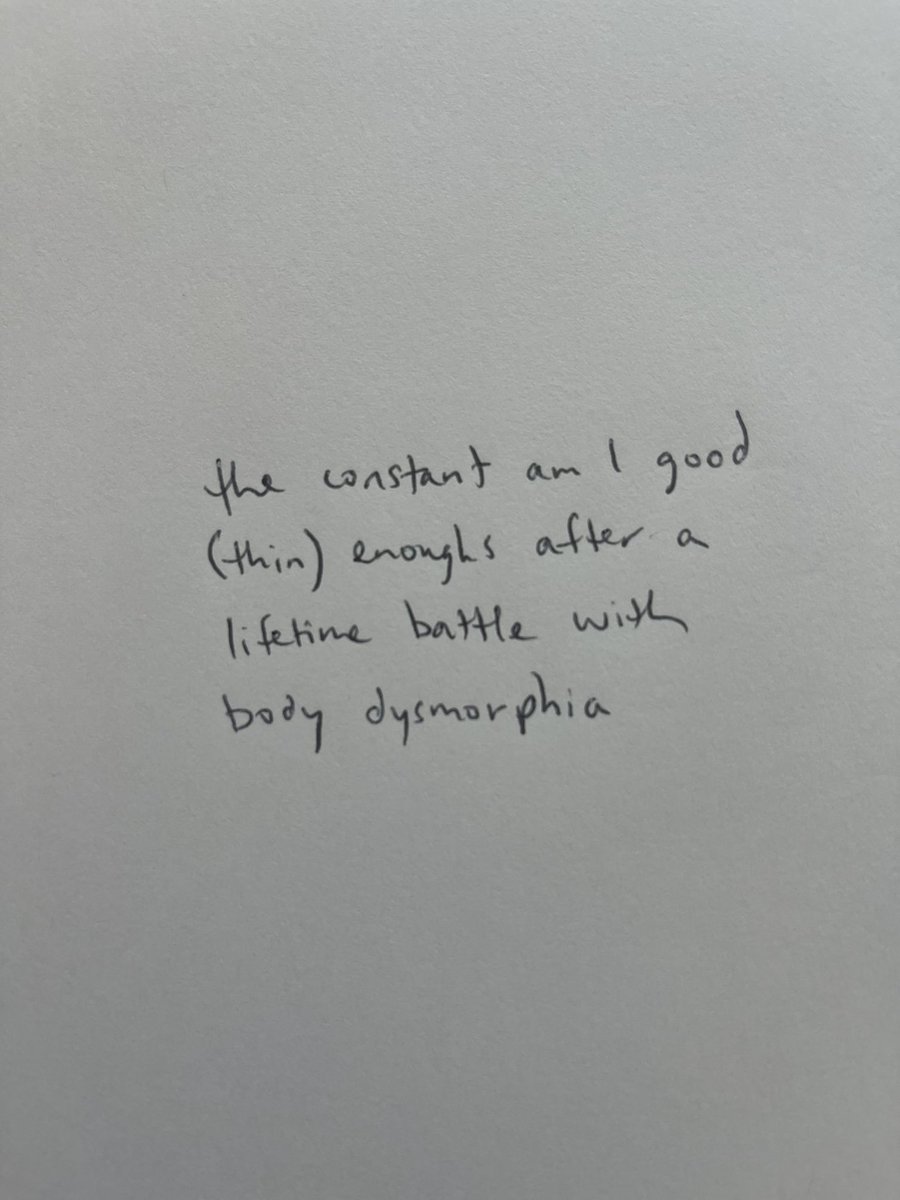 the constant am I good
(thin) enoughs after a
lifetime battle with
body dysmorphia